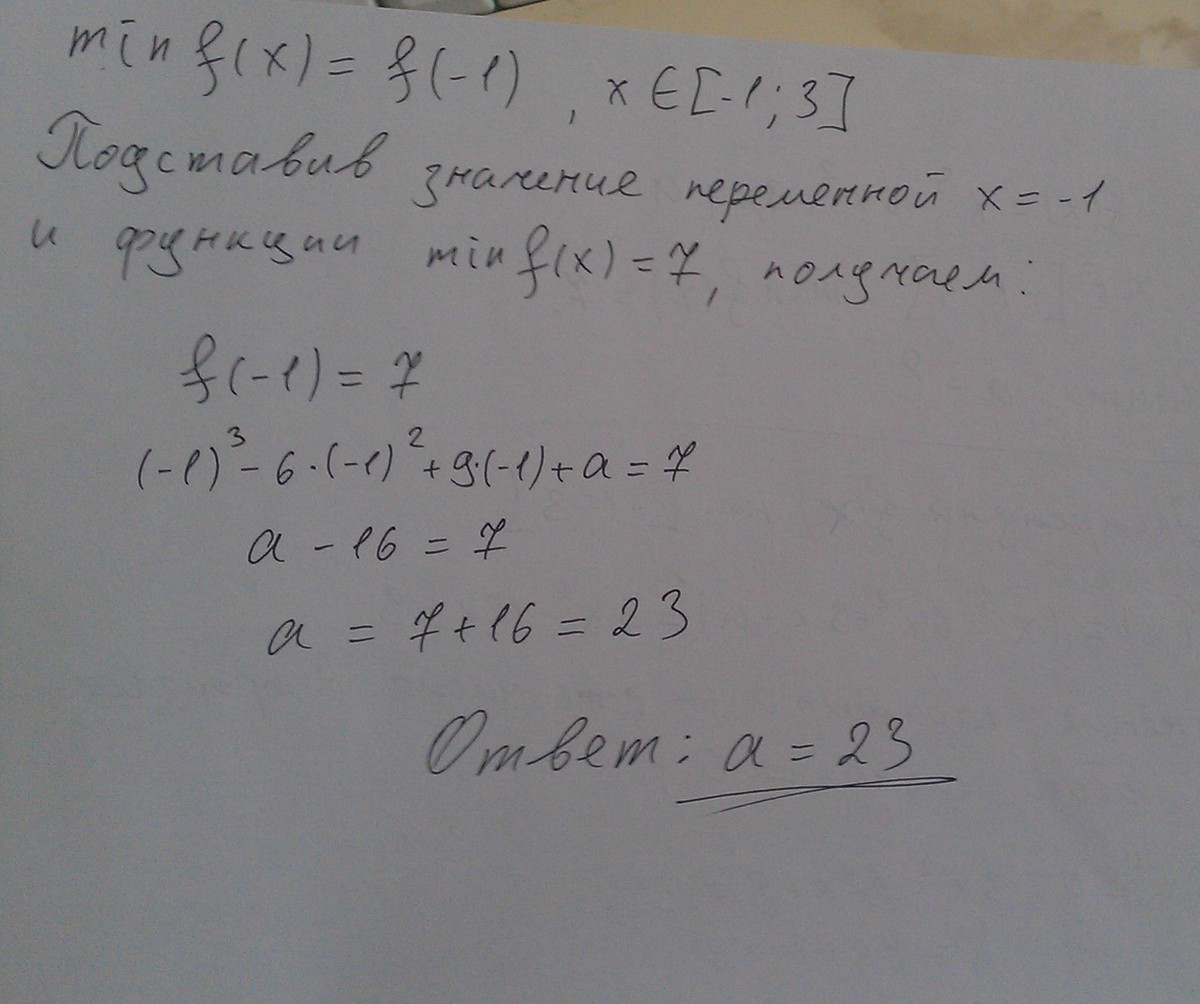 min f(x) = f(-1) , x ∈ [-1; 3]
Подставив значение переменной x = -1
и функции min f(x) = 7, получаем:
f(-1) = 7
(-1)³ - 6·(-1)² + 9·(-1) + a = 7
a - 16 = 7
a = 7 + 16 = 23
Ответ: a = 23